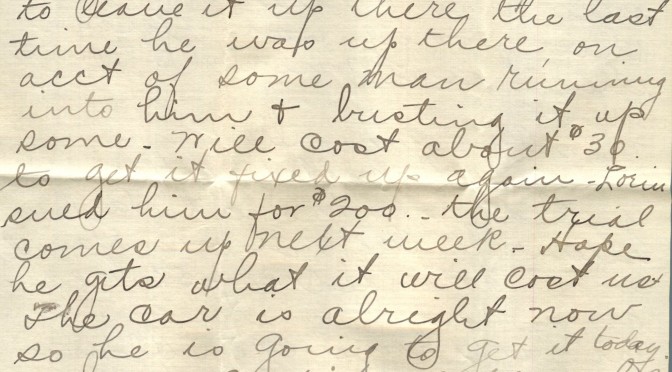 to leave it up there the last
time he was up there, on
acct of some man running
into him & busting it up
some - Will cost about $30
to get it fixed up again - Lorin
sued him for $200.. - the trial
comes up next week - Hope
he gets what it will cost us
The car is alright now
so he is going to get it today.